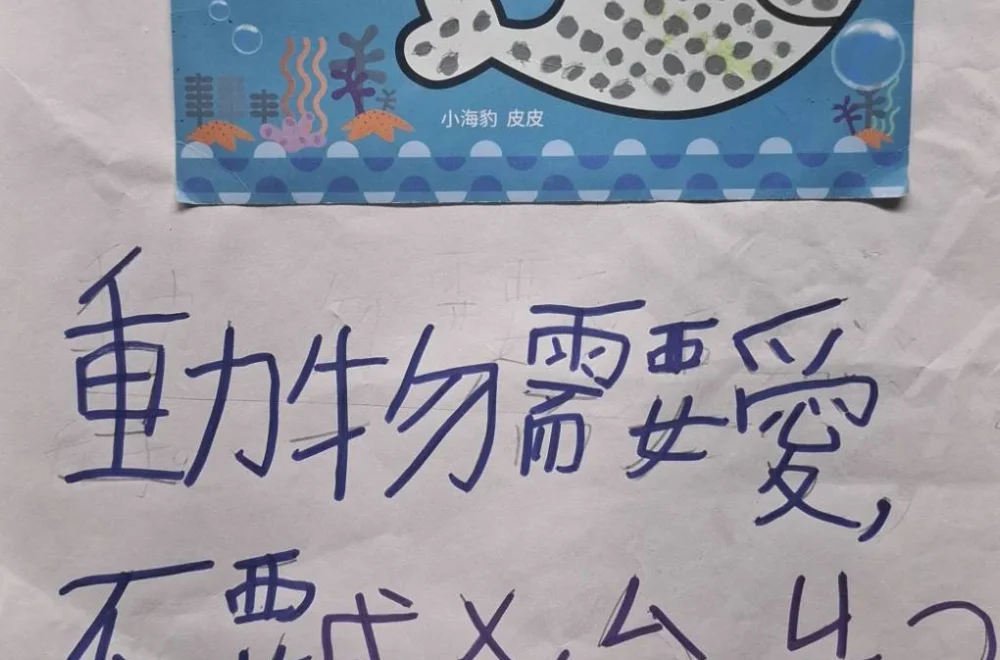 小海豹 皮皮
動物需要愛,
不要